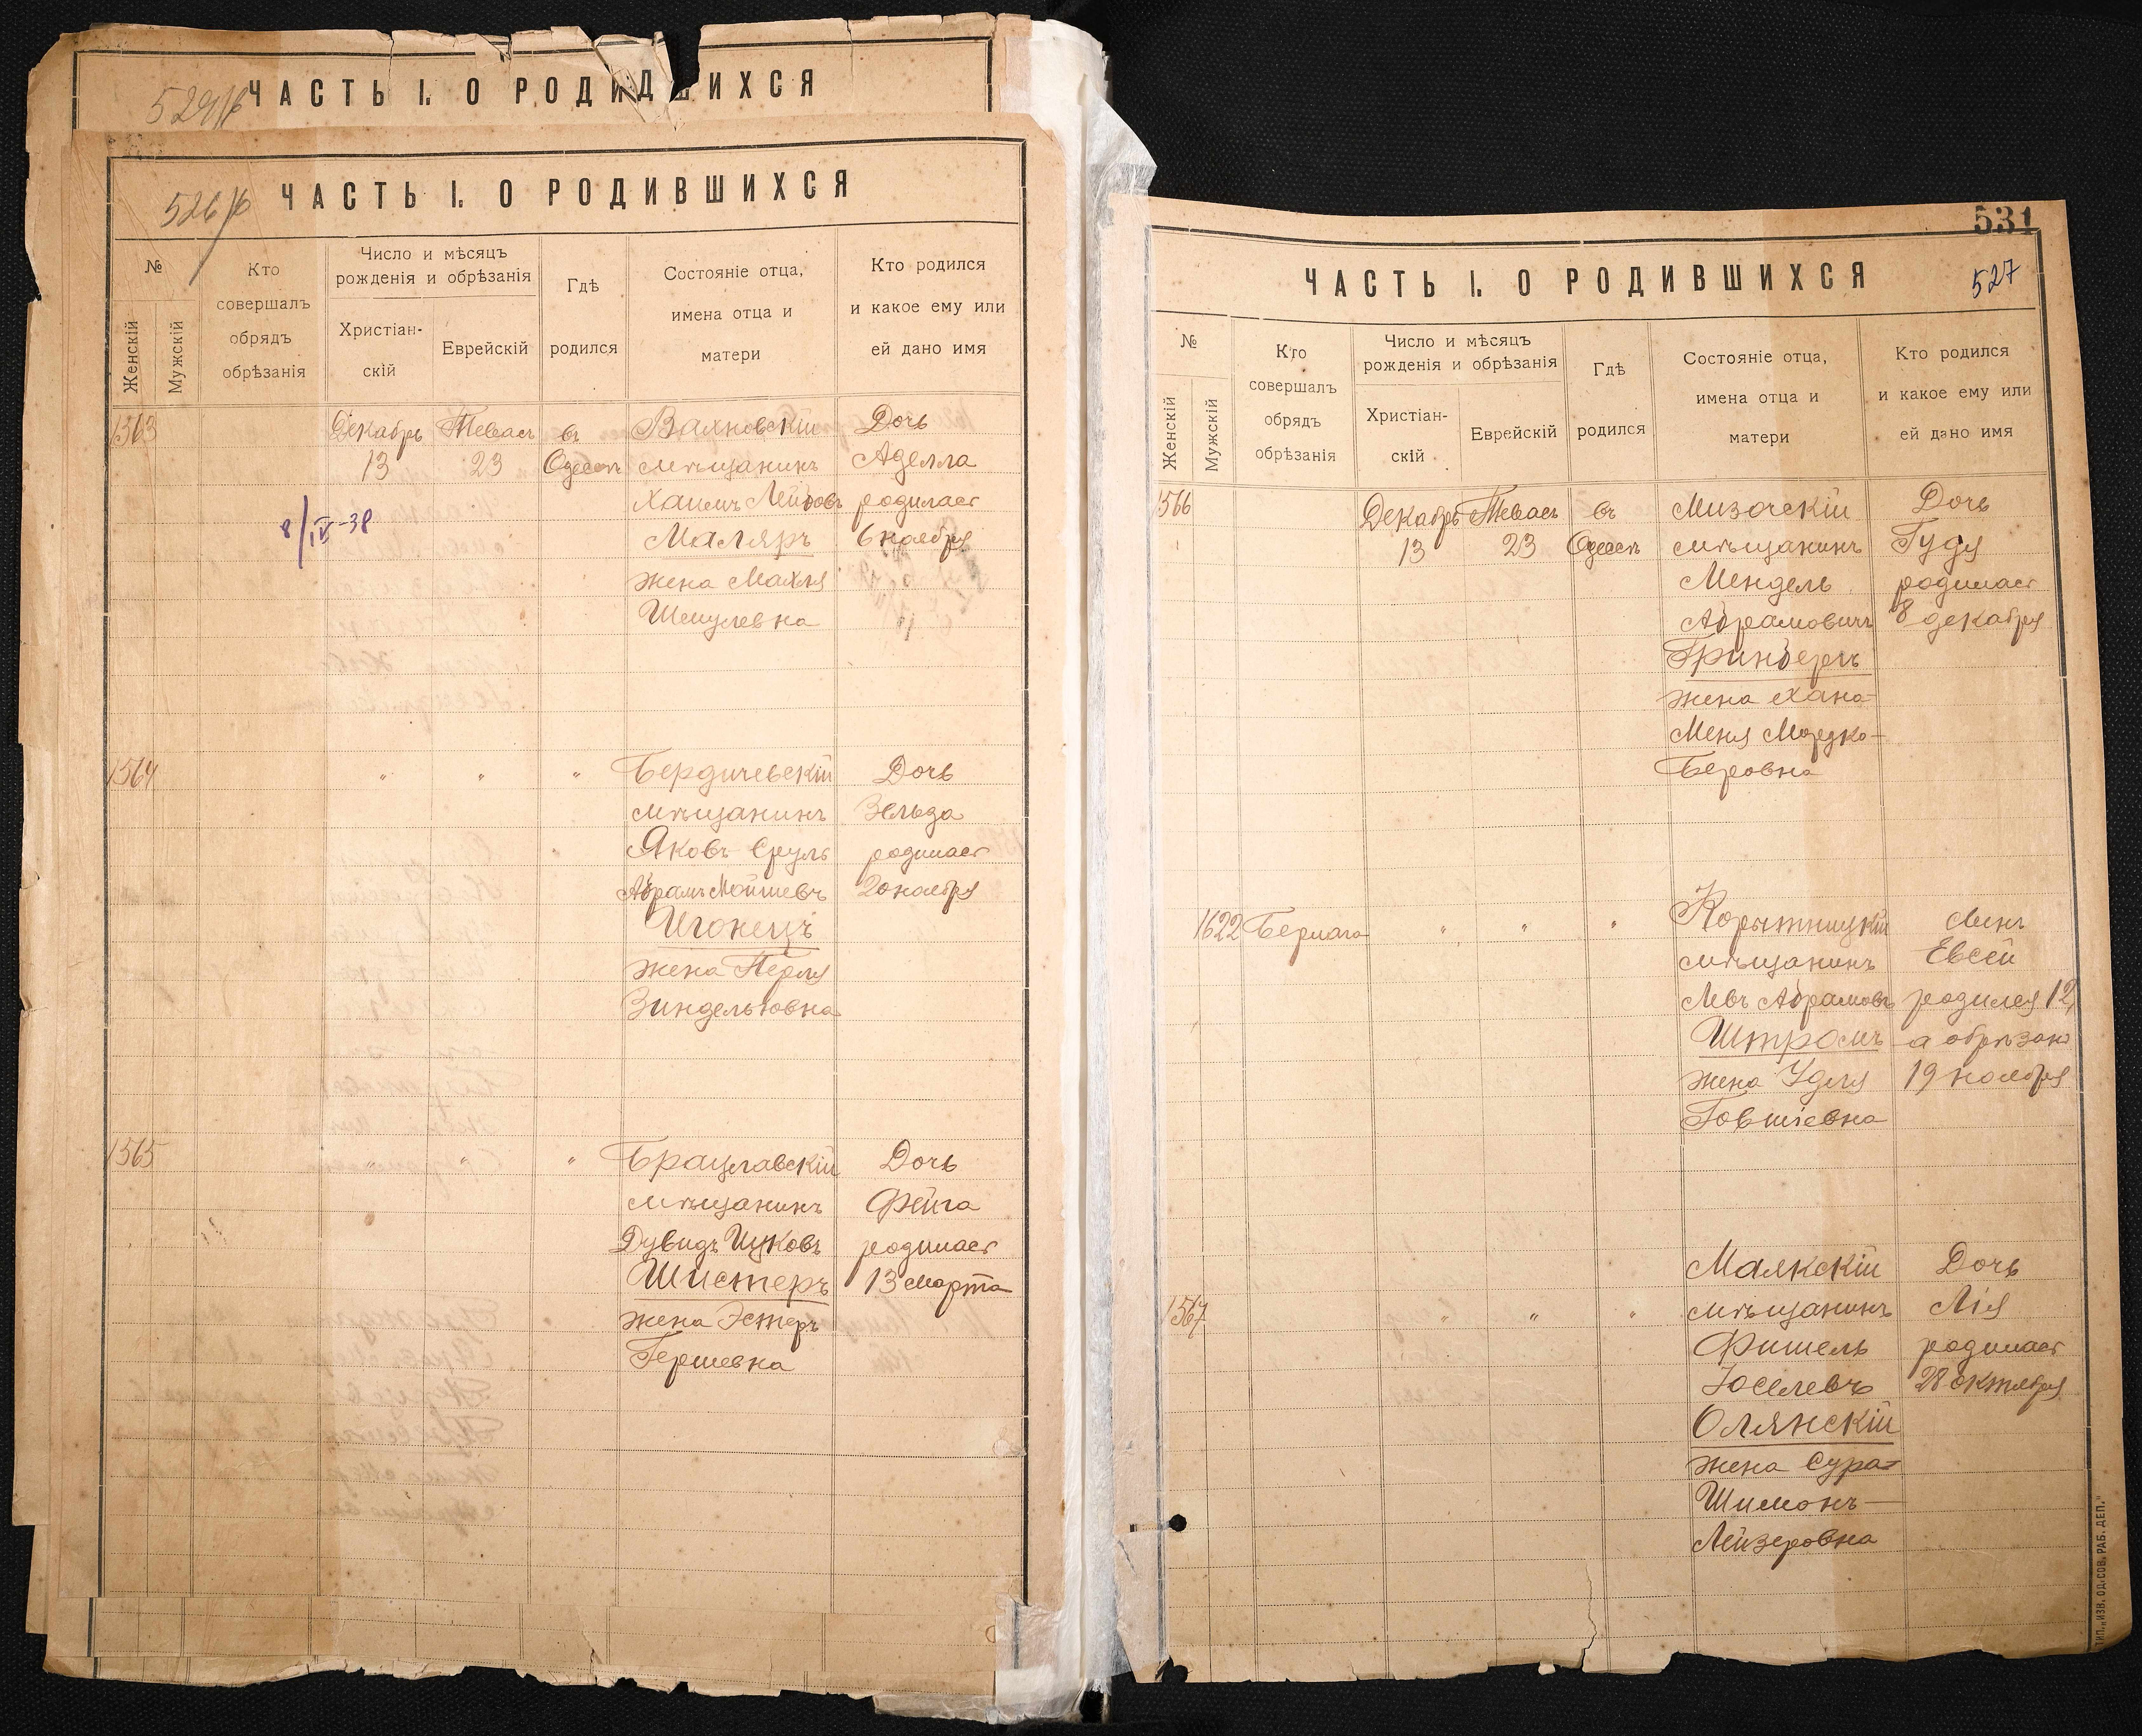 ЧАСТЬ I. О РОДИВШИХСЯ
526
ЧАСТЬ I. О РОДИВШИХСЯ
№
Женскій
Мужскій
Кто
совершалъ
обрядъ
обрѣзанія
Число и мѣсяцъ
рожденія и обрѣзанія
Христіан-
скій
Еврейскій
Гдѣ
родился
Состояніе отца,
имена отца и
матери
Кто родился
и какое ему или
ей дано имя
1563
Декабрь
13
Тевасъ
23
въ
Одессѣ
8/IV-38
мѣщанинъ
Хаимъ Лейбовъ
Маляръ
жена Махля
Шмулевна
Дочь
Аделла
родилась
6 ноября
1564
" " "
Бердичевскій
мѣщанинъ
Яковъ Сруль
Абрамъ Мойшевъ
жена Перля
Зиндельовна
Дочь
Зельда
родилась
20 ноября
1565
" " "
Брацлавскій
мѣщанинъ
Дувидъ Ицковъ
Шистеръ
жена Эстеръ
Гершевна
Дочь
Фейга
родилась
13 марта
531
527
ЧАСТЬ I. О РОДИВШИХСЯ
№
Женскій
Мужскій
Кто
совершалъ
обрядъ
обрѣзанія
Число и мѣсяцъ
рожденія и обрѣзанія
Христіан-
скій
Еврейскій
Гдѣ
родился
Состояніе отца,
имена отца и
матери
Кто родился
и какое ему или
ей дано имя
1566
Декабрь
13
Тевасъ
23
въ
Одессѣ
Мизочскій
мѣщанинъ
Мендель
Абрамовичъ
Гринбергъ
жена Хана-
Меня Мордко-
Беровна
Дочь
Гудя
родилась
8 декабря
1622
" " "
мѣщанинъ
Левъ Абрамовъ
Штромъ
жена Удля
Говшіевна
Сынъ
Евсей
родился 12,
а обрѣзанъ
19 ноября
1567
" " "
Маякскій
мѣщанинъ
Фишель
Іоселевъ
Олянскій
жена Сура-
Шимонъ-
Лейзеровна
Дочь
Лія
родилась
28 октября
ТИП. „ИЗВ. ОД. СОВ. РАБ. ДЕП."